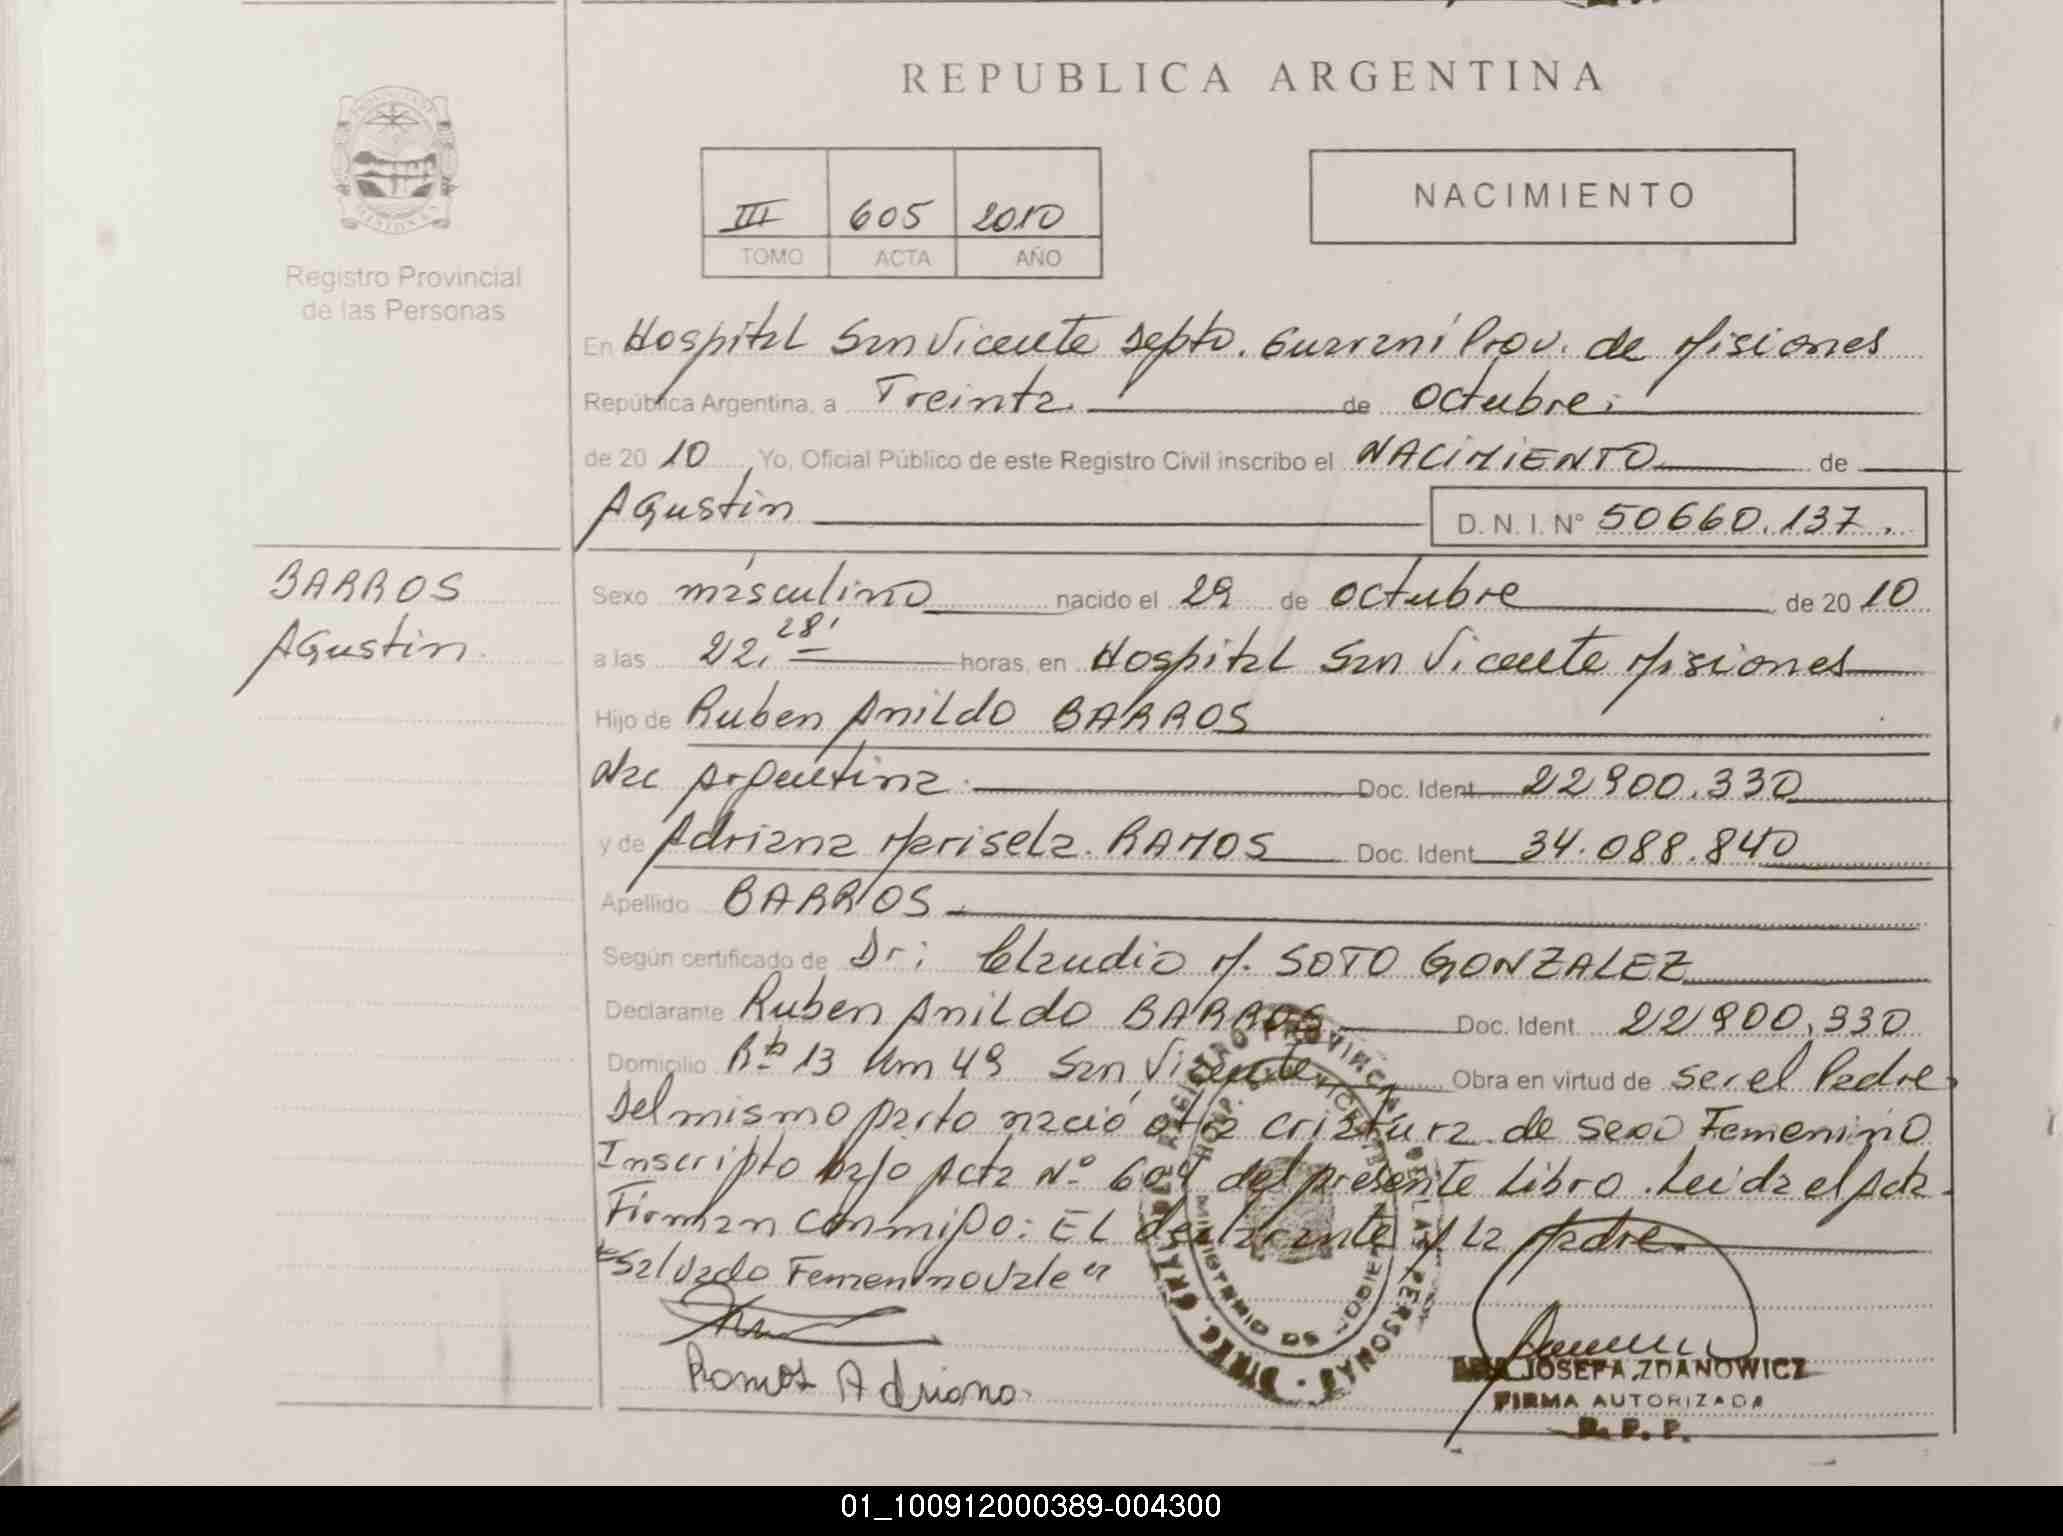 REPUBLICA ARGENTINA
III 605 2010
TOMO ACTA AÑO
NACIMIENTO
Registro Provincial
de las Personas
En Hospital San Vicente Depto. Guaraní Prov. de Misiones
República Argentina, a Treinta de octubre
de 2010 Yo, Oficial Público de este Registro Civil inscribo el NACIMIENTO de
Agustin D. N. I. N° 50660.137
BARROS
Agustin
Sexo másculino nacido el 29 de octubre de 2010
a las 22, 28' horas, en Hospital San Vicente Misiones
Hijo de Ruben Anildo BARROS
Nac Argentina Doc. Ident 22900.330
y de Adriana Marisela RAMOS Doc. Ident 34.088.840
Apellido BARROS
Según certificado de Dr: Claudio M. SOTO GONZALEZ
Declarante Ruben Anildo BARROS Doc. Ident. 22900.330
Domicilio Rta 13 Km 49 San Vicente Obra en virtud de ser el Padre
Del mismo parto nació otra criatura de sexo Femenino
Inscripto bajo Acta N° 604 del presente Libro. Leida el Acta
Firman conmigo: El declarante y la Madre.
"Salvado Femenino Vale"
Ramos Adriana
JOSEFA ZDANOWICZ
FIRMA AUTORIZADA
R. P. P.
01_100912000389-004300